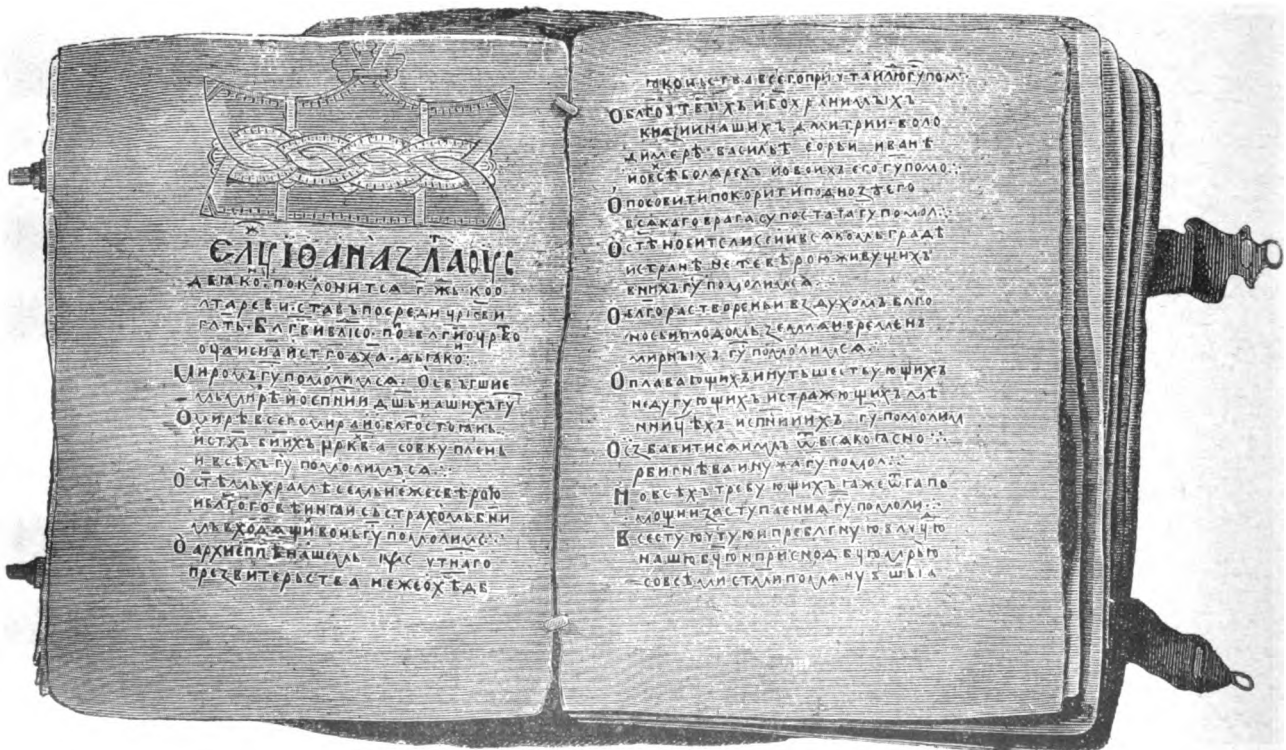 ЕЛЦІѲАНАЗЛАОУС
ДЬІАКО҃·ПОКЛОНИТСА Г ЖЬ КОО
ЛТАРЕВИ·СТАВЪПОСРЕДИ ЦР҃КВИ
ГЛ҃ТЬ·БЛГ҃ВИВЛ҃КО·ПО҃·БЛГ҃ИОЧРТВО
ОЦ҃АИСН҃АИСТ҃ГОДХ҃А·ДЬІАКО҃:
МИРОМЪГУ҃ПОМОЛИМСА·ОСВЪГШИЕ
МЬМИРѢИОСПН҃ИИДШ҃ЬНАШИХЪГУ҃
ОМИРѢВСЕГОМИРАИОБЛГ҃ОСТОГАНЬ
ИСТ҃ХЪБ҃ИИХЪЦР҃КВ҃АСОВКУПЛЕНЬ
ИВСѢХЪГУ҃ПОМОЛИМЪСА:·
ОСТ҃ѢМЬХРАМѢСЕМЬИЖЕСВѢРОЮ
ИБЛГ҃ОГОВѢИНГАИСЪСТРАХОМЬБ҃ИИ
МЬВХОДАЩИВОНЬГУ҃ПОМОЛИМС:·
ОАРХИЕПП҃ѢНАШЕМЬ ЧТНАГО
ПРЕЗВИТЕРЬСТВАИЖЕОХ҃ѢДЬ
ІАКОНЬСТВАВСЕГОПРИЧТАИЛЮ҃ГУ҃ПОМ:·
ОБЛГ҃ОЧТВЪІХЪИБО҃ХРАНИМЪІХЪ
КНАЗИИНАШИХЪ ДМИТРИИ·ВОЛО
ДИМЕРѢ·ВАСИЛЬѢ ЕОРЬИ ИВАНѢ
ИОВСѢБОЛАРЕХЪ ИОВОИХЪЕГОГУ҃ПОМО:·
ОПОСОБИТИПОКОРИТИПОДНОЗѢЕГО
ВСАКАГОВРАГАСУПОСТАТАГУ҃ПОМОЛ:·
ОСТѢНОБИТСЛИСЕИИВСАКОМЬГРАДѢ
ИСТРАНѢИЖЕВѢРОЮЖИВУЩИХЪ
ВНИХЪГУ҃ПОМОЛИМСА:·
ОБЛГ҃ОРАСТВОРЕНЬИВЪЗДУХОМЪБЛГ҃О
НОСЬИПЛОДОМЬЗЕМЛАИВРЕМЕНЪ
МИРНЪІХЪ ГУ҃ ПОМОЛИМСА:·
ОПЛАВАЮЩИХЪИПУТЬШЕСТВУЮЩИХЪ
НЕДУГУЮЩИХЪИСТРАЖЮЩИХЪПЛѢ
ННИЦѢХЪ ИСПН҃ИИИХЪ ГУ҃ПОМОЛИМ
ОИЗБАВИТИСАНАМЪѾВСАКОГАСКО:·
РБИГНѢВАИНУЖАГУ҃ПОМОЛ:·
ИОВСѢХЪТРЕБУЮЩИХЪГАЖЕѾГАПО
МОЩИИЗАСТУПЛЕНИАГУ҃ПОМОЛИ:·
ВСЕСТ҃УЮЧТ҃УЮИПРЕБЛГ҃НУЮВЛЧ҃ЦЮ
НАШЮБЦ҃ЮИПРИСНОДВ҃ЦЮМР҃ЬЮ
СОВСѢМИСТ҃МИПОМАНУВШЬІА